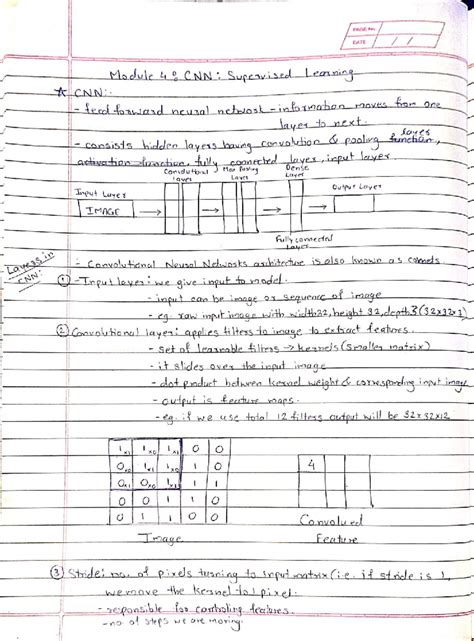 PAGE No.
DATE / /
Module 4: CNN: Supervised Learning
☆ CNN:-
- feed forward neural network - information moves from one
layer to next.
- consists hidden layers having convolution & pooling layer
activation function, fully connected layer, input layer.
Input Layer Convolutional Layer Max Pooling Layer Dense Layer Output Layer
IMAGE
Fully connected Layer
- Convolutional Neural Networks architecture is also known as
Layers in
CNN:
① - Input layer: we give input to model.
- input can be image or sequence of image
- eg. raw input image with width 32, height 32, depth 3 (32x32x3)
② Convolutional layer: applies filters to image to extract features.
- set of learnable filters → kernels (smaller matrix)
- it slides over the input image
- dot product between kernel weight & corresponding input image
- output is feature maps.
- eg. if we use total 12 filters output will be 32x32x12
1x1 1x0 1x1 0 0
0x0 1x1 1x0 1 0
0x1 0x0 1x1 1 1
0 0 1 1 0
0 1 1 0 0
Image
4
Convolued
Feature
③ Stride: no. of pixels turning to input matrix (i.e. if stride is 1,
we move the kernel to 1 pixel.
- responsible for controling features.
- no of steps we are moving.